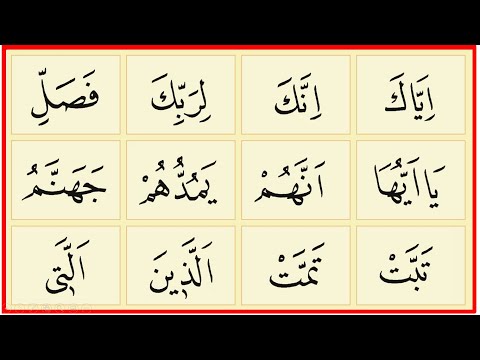 اِيَّاكَ اِنَّكَ لِرَبِّكَ فَصَلِّ
يَا اَيُّهَا اَنَّهُمْ يَمُدُّهُمْ جَهَنَّمُ
تَبَّتْ تَمَّتْ اَلَّذِينَ اَلَّتِي